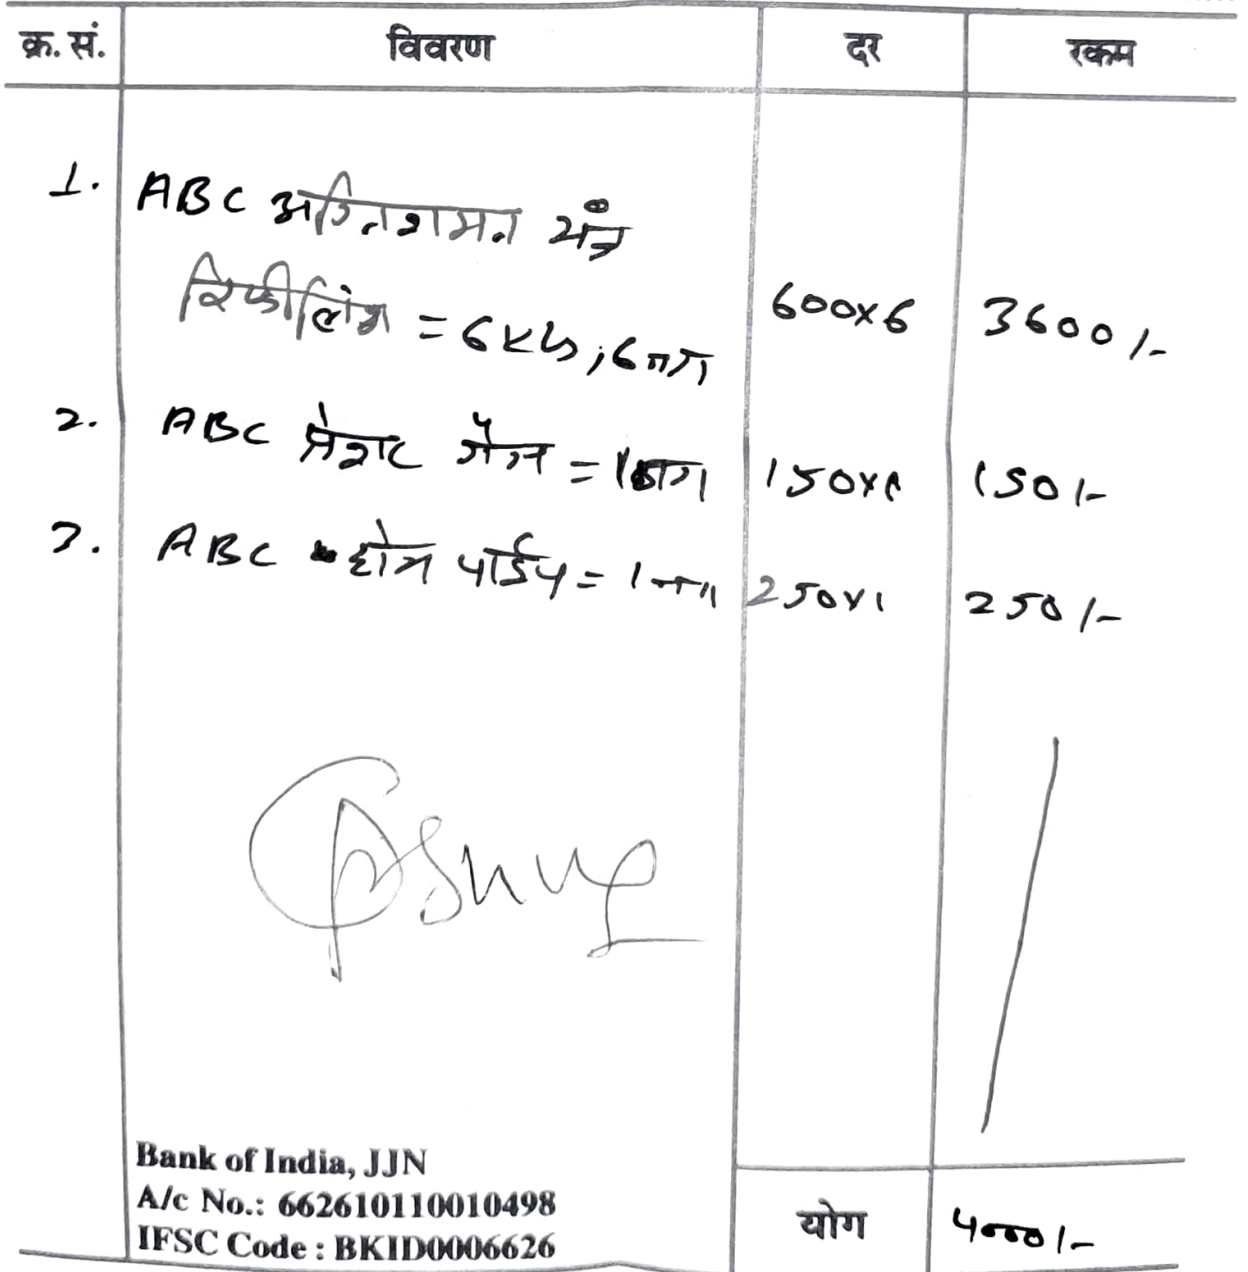 क्र. सं. विवरण दर रकम
1. ABC अग्निशमन यंत्र
रिफीलिंग = 6 KG, 6 नग 600x6 3600/-
2. ABC प्रेशर गेज = 1 नग 150x1 150/-
3. ABC होज पाईप = 1 नग 250x1 250/-
Bank of India, JJN
A/c No.: 662610110010498
IFSC Code : BKID0006626
योग 4000/-